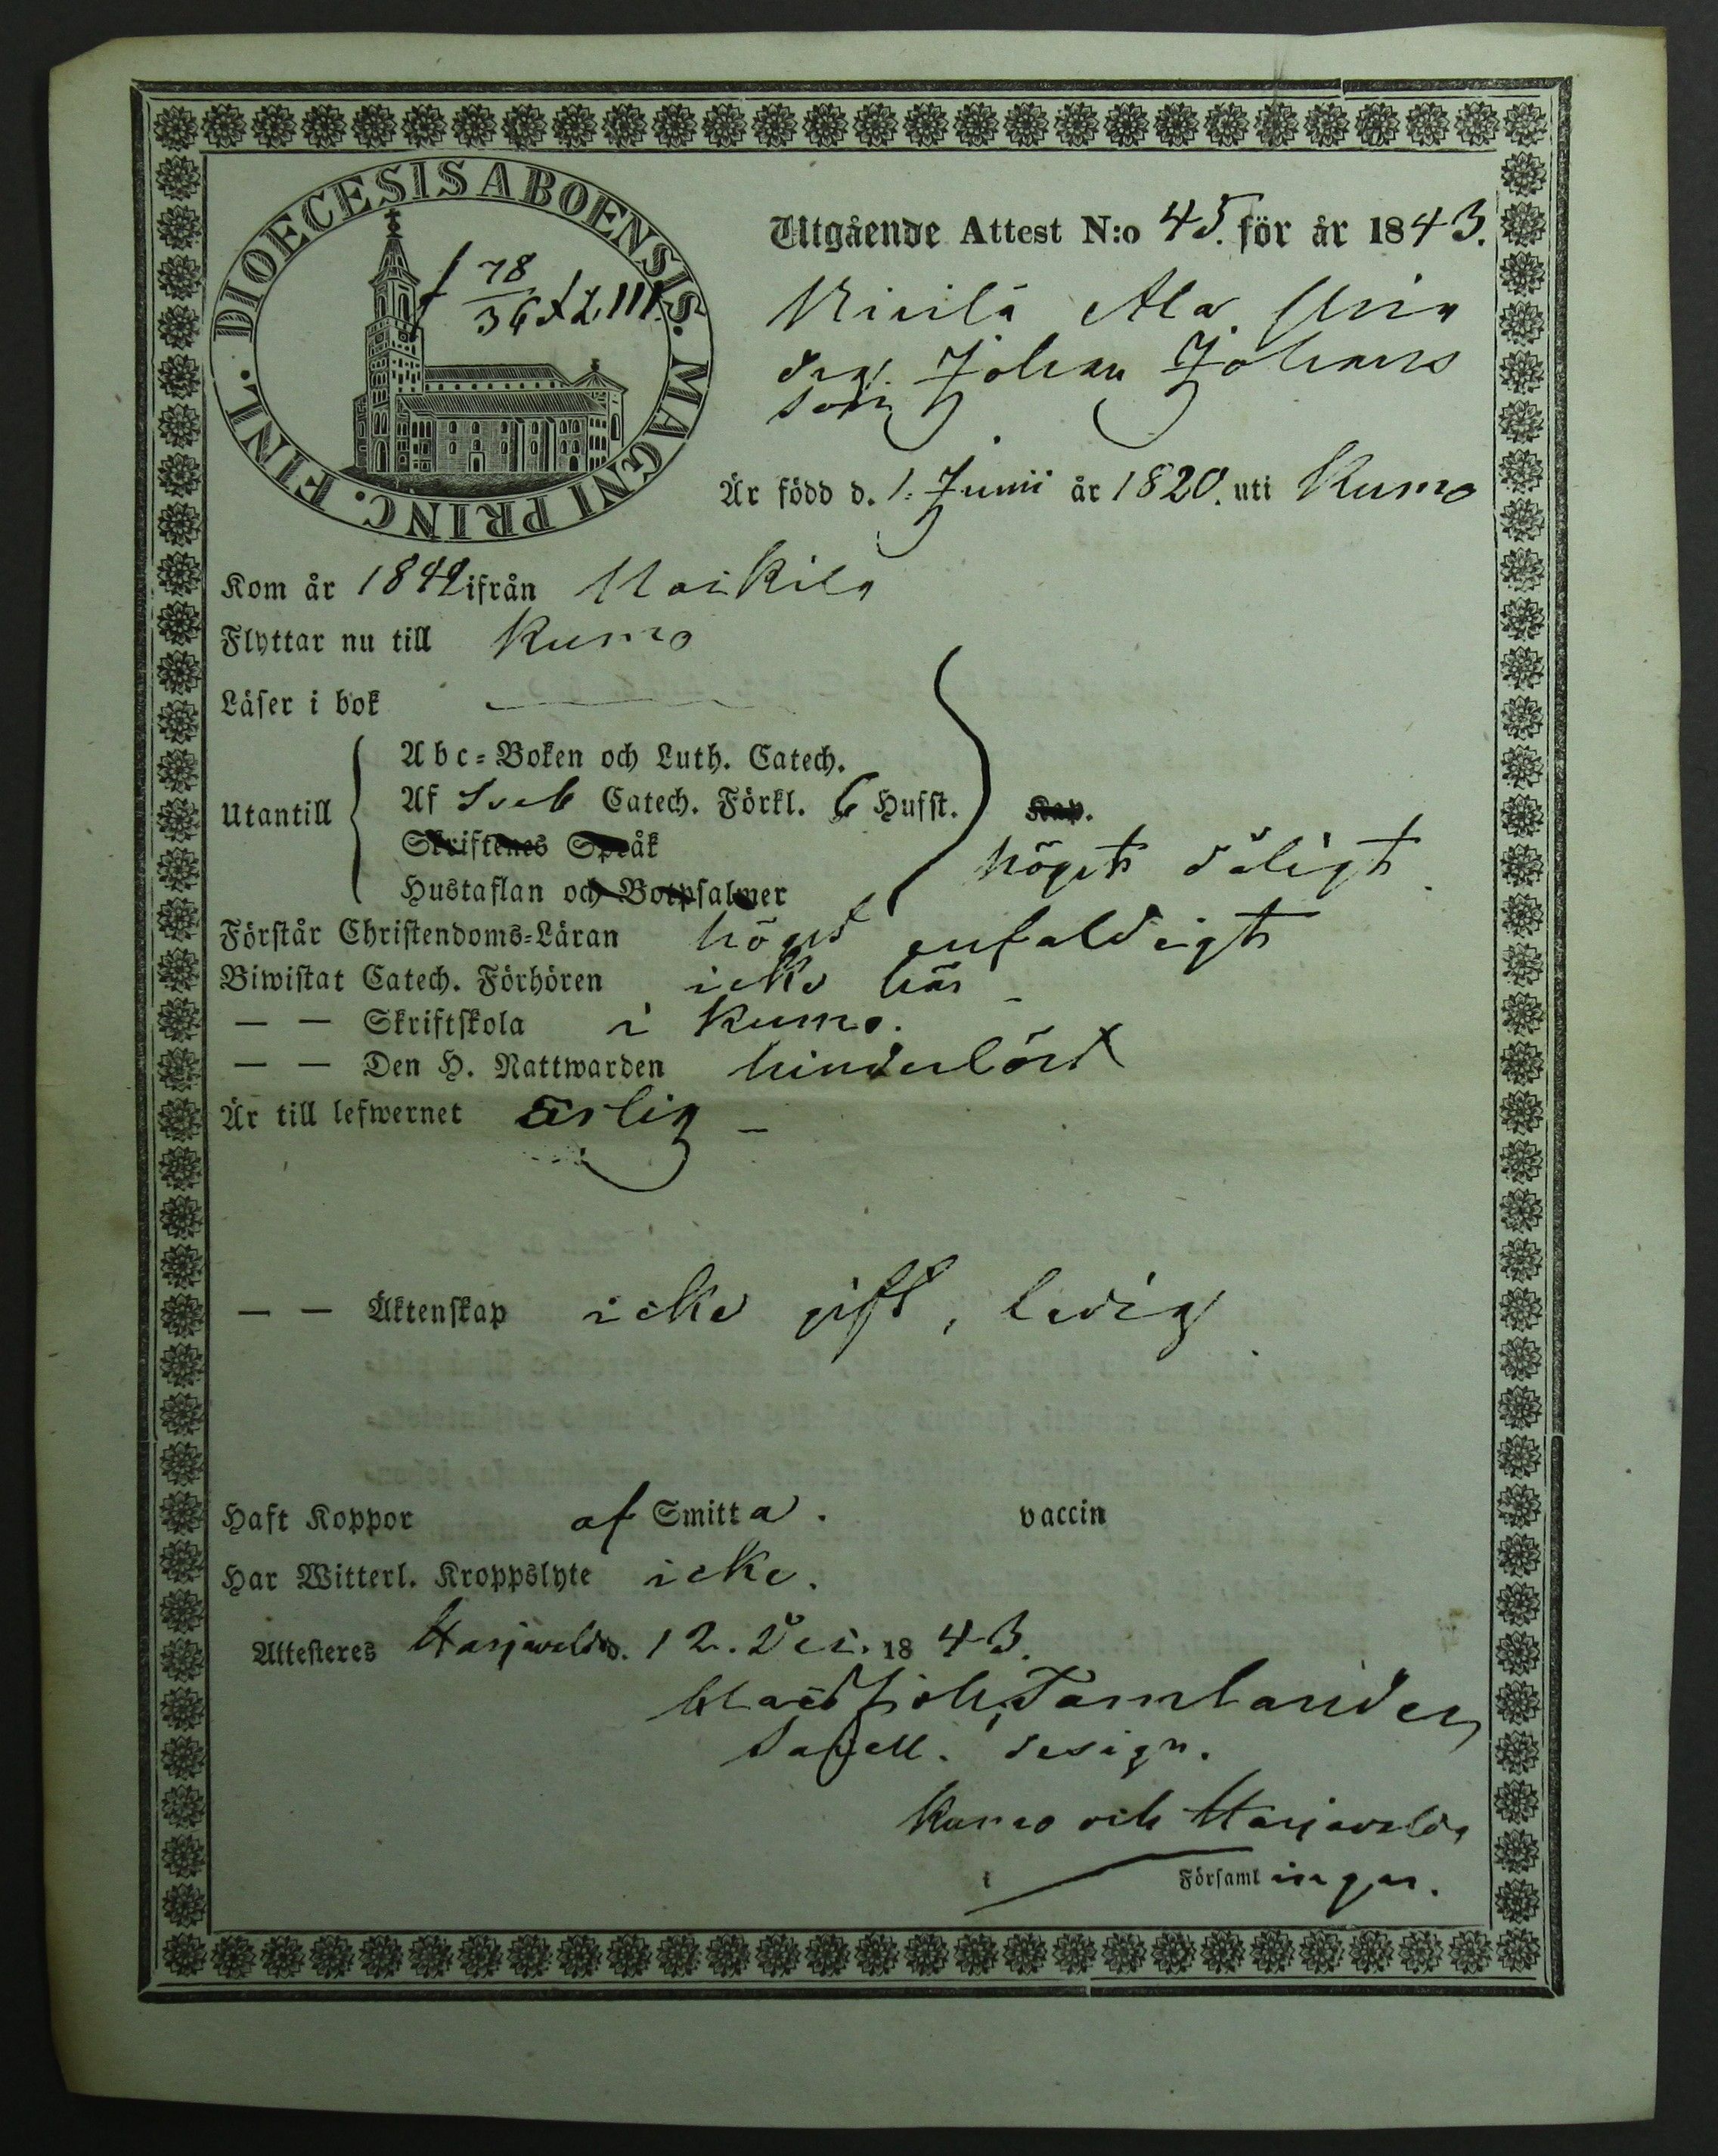 DIOECESIS ABOENSIS. MAGNI PRINC. FINL.
78
36
Utgående Attest N:o 45. för år 1843.
Ala
drg. Johan Johans
son
Är född d. 1. Junii år 1820. uti Kumo
Kom år 1842 ifrån
Flyttar nu till Kumo
Läser i bok
Utantill
Abc-Boken och Luth. Catech.
Af Sveb Catech. Förkl. 6 Hufst. Kap.
Skriftenes Språk
högst dåligt
Hustaflan och Botpsalmer
Förstår Christendoms-Läran högst enfaldigt
Biwistat Catech. Förhören icke här
— — Skriftskola i Kumo.
— — Den H. Nattwarden hinderlöst
Är till lefwernet ärlig —
— — Äktenskap icke gift, ledig
Haft Koppor af Smitta. vaccin
Har Witterl. Kroppslyte icke.
Attesteres Harjavalda d. 12. Dec. 1843.
Joh. Tamlander
Sacell. design.
Kumo och Harjavalda
i Församlingar.